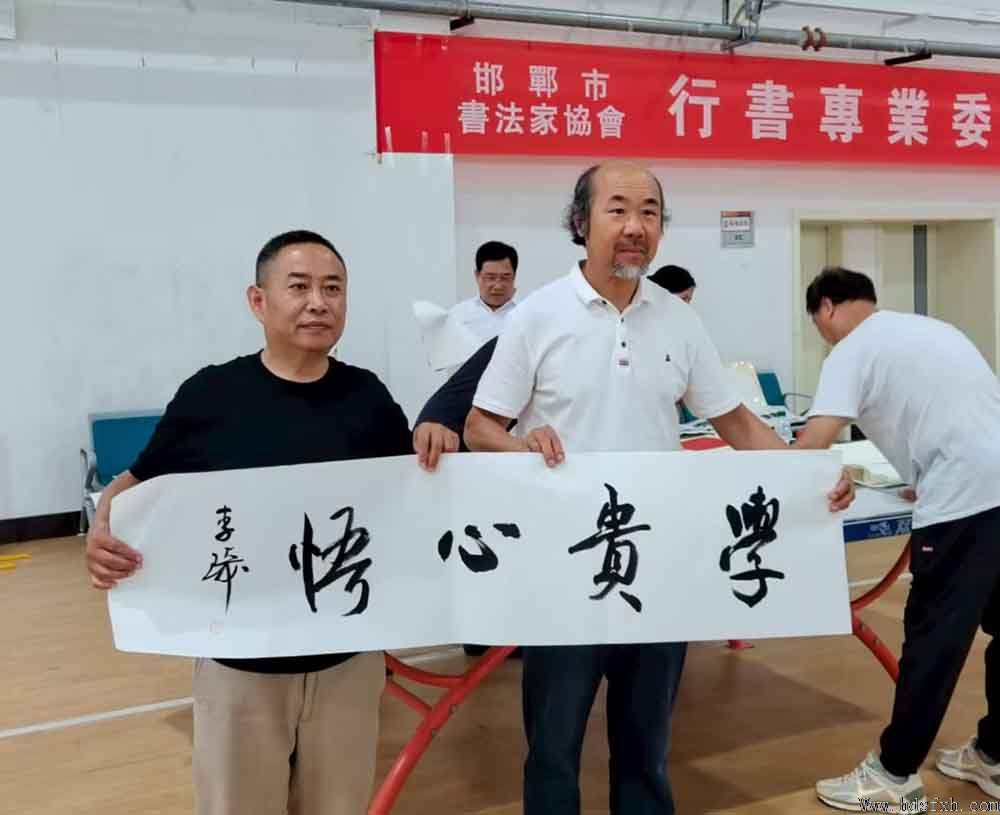 邯鄲市
書法家協會
行書專業委
學貴心悟
Www.hdsfxh.com